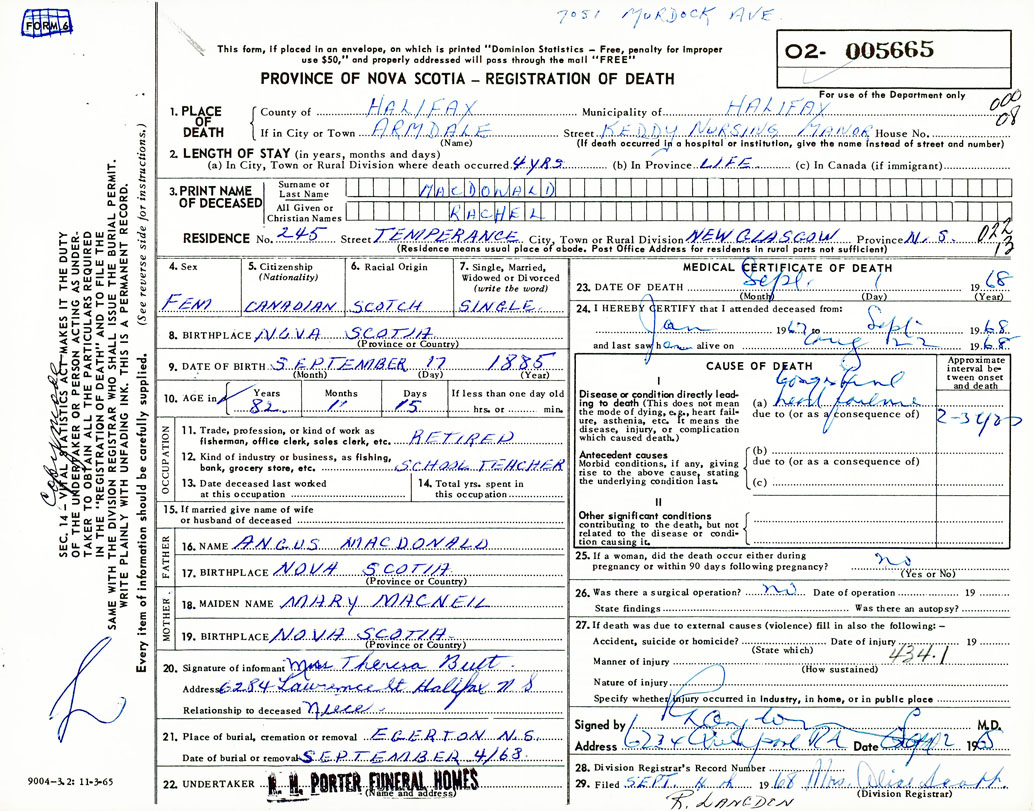 7051 MURDOCK AVE.
FORM 6
This form, if placed in an envelope, on which is printed "Dominion Statistics – Free, penalty for improper
use $50," and properly addressed will pass through the mail "FREE"
PROVINCE OF NOVA SCOTIA – REGISTRATION OF DEATH
02- 005665
For use of the Department only
000
08
1. PLACE OF DEATH
County of HALIFAX Municipality of HALIFAX
If in City or Town ARMDALE Street KEDDY NURSING MANOR House No.
(Name) (If death occurred in a hospital or institution, give the name instead of street and number)
2. LENGTH OF STAY (in years, months and days)
(a) In City, Town or Rural Division where death occurred 4 yrs (b) In Province LIFE (c) In Canada (if immigrant)
3. PRINT NAME OF DECEASED
Surname or Last Name MACDONALD
All Given or Christian Names RACHEL
RESIDENCE No. 245 Street TEMPERANCE City, Town or Rural Division NEW GLASGOW Province N.S.
(Residence means usual place of abode. Post Office Address for residents in rural parts not sufficient)
022
13
4. Sex
FEM
5. Citizenship (Nationality)
CANADIAN
6. Racial Origin
SCOTCH
7. Single, Married, Widowed or Divorced (write the word)
SINGLE
8. BIRTHPLACE NOVA SCOTIA
(Province or Country)
9. DATE OF BIRTH SEPTEMBER 17 1885
(Month) (Day) (Year)
10. AGE in
Years 82
Months 11
Days 15
If less than one day old
hrs. or min.
OCCUPATION
11. Trade, profession, or kind of work as
fisherman, office clerk, sales clerk, etc. RETIRED
12. Kind of industry or business, as fishing,
bank, grocery store, etc. SCHOOL TEACHER
13. Date deceased last worked
at this occupation
14. Total yrs. spent in
this occupation
15. If married give name of wife
or husband of deceased
FATHER
16. NAME ANGUS MACDONALD
17. BIRTHPLACE NOVA SCOTIA
(Province or Country)
MOTHER
18. MAIDEN NAME MARY MACNEIL
19. BIRTHPLACE NOVA SCOTIA
(Province or Country)
20. Signature of informant Miss Theresa Butt
Address 6284 Lawrence St Halifax N S
Relationship to deceased Niece
21. Place of burial, cremation or removal EGERTON N.S.
Date of burial or removal SEPTEMBER 4/68
22. UNDERTAKER H. H. PORTER FUNERAL HOMES
(Name and address)
MEDICAL CERTIFICATE OF DEATH
23. DATE OF DEATH Sept. 1 1968
(Month) (Day) (Year)
24. I HEREBY CERTIFY that I attended deceased from:
Jan 1967 to Sept. 1968
and last saw her alive on Aug 1968
CAUSE OF DEATH
Approximate interval between onset and death
I
Disease or condition directly leading to death (This does not mean
the mode of dying, e.g., heart failure, asthenia, etc. It means the
disease, injury, or complication
which caused death.)
(a) Congestive heart failure
due to (or as a consequence of)
2-3 yrs
Antecedent causes
Morbid conditions, if any, giving
rise to the above cause, stating
the underlying condition last.
(b)
due to (or as a consequence of)
(c)
II
Other significant conditions
contributing to the death, but not
related to the disease or condition causing it.
25. If a woman, did the death occur either during
pregnancy or within 90 days following pregnancy? no
(Yes or No)
26. Was there a surgical operation? no Date of operation 19
State findings Was there an autopsy?
27. If death was due to external causes (violence) fill in also the following: –
Accident, suicide or homicide? Date of injury 19
(State which)
434.1
Manner of injury
(How sustained)
Nature of injury
Specify whether injury occurred in Industry, in home, or in public place
Signed by R Langdon M.D.
Address 6234 Quinpool Rd Date Sept 2 1968
28. Division Registrar's Record Number
29. Filed SEPT 4th 1968 Mrs. Alice
(Division Registrar)
R. LANGDON
SEC. 14 – VITAL STATISTICS ACT MAKES IT THE DUTY
OF THE UNDERTAKER OR PERSON ACTING AS UNDER-
TAKER TO OBTAIN ALL THE PARTICULARS REQUIRED
IN THE "REGISTRATION OF DEATH" AND TO FILE THE
SAME WITH THE DIVISION REGISTRAR WHO SHALL ISSUE THE BURIAL PERMIT.
WRITE PLAINLY WITH UNFADING INK. THIS IS A PERMANENT RECORD.
Every item of information should be carefully supplied. (See reverse side for instructions.)
9004–3.2: 11-3-65